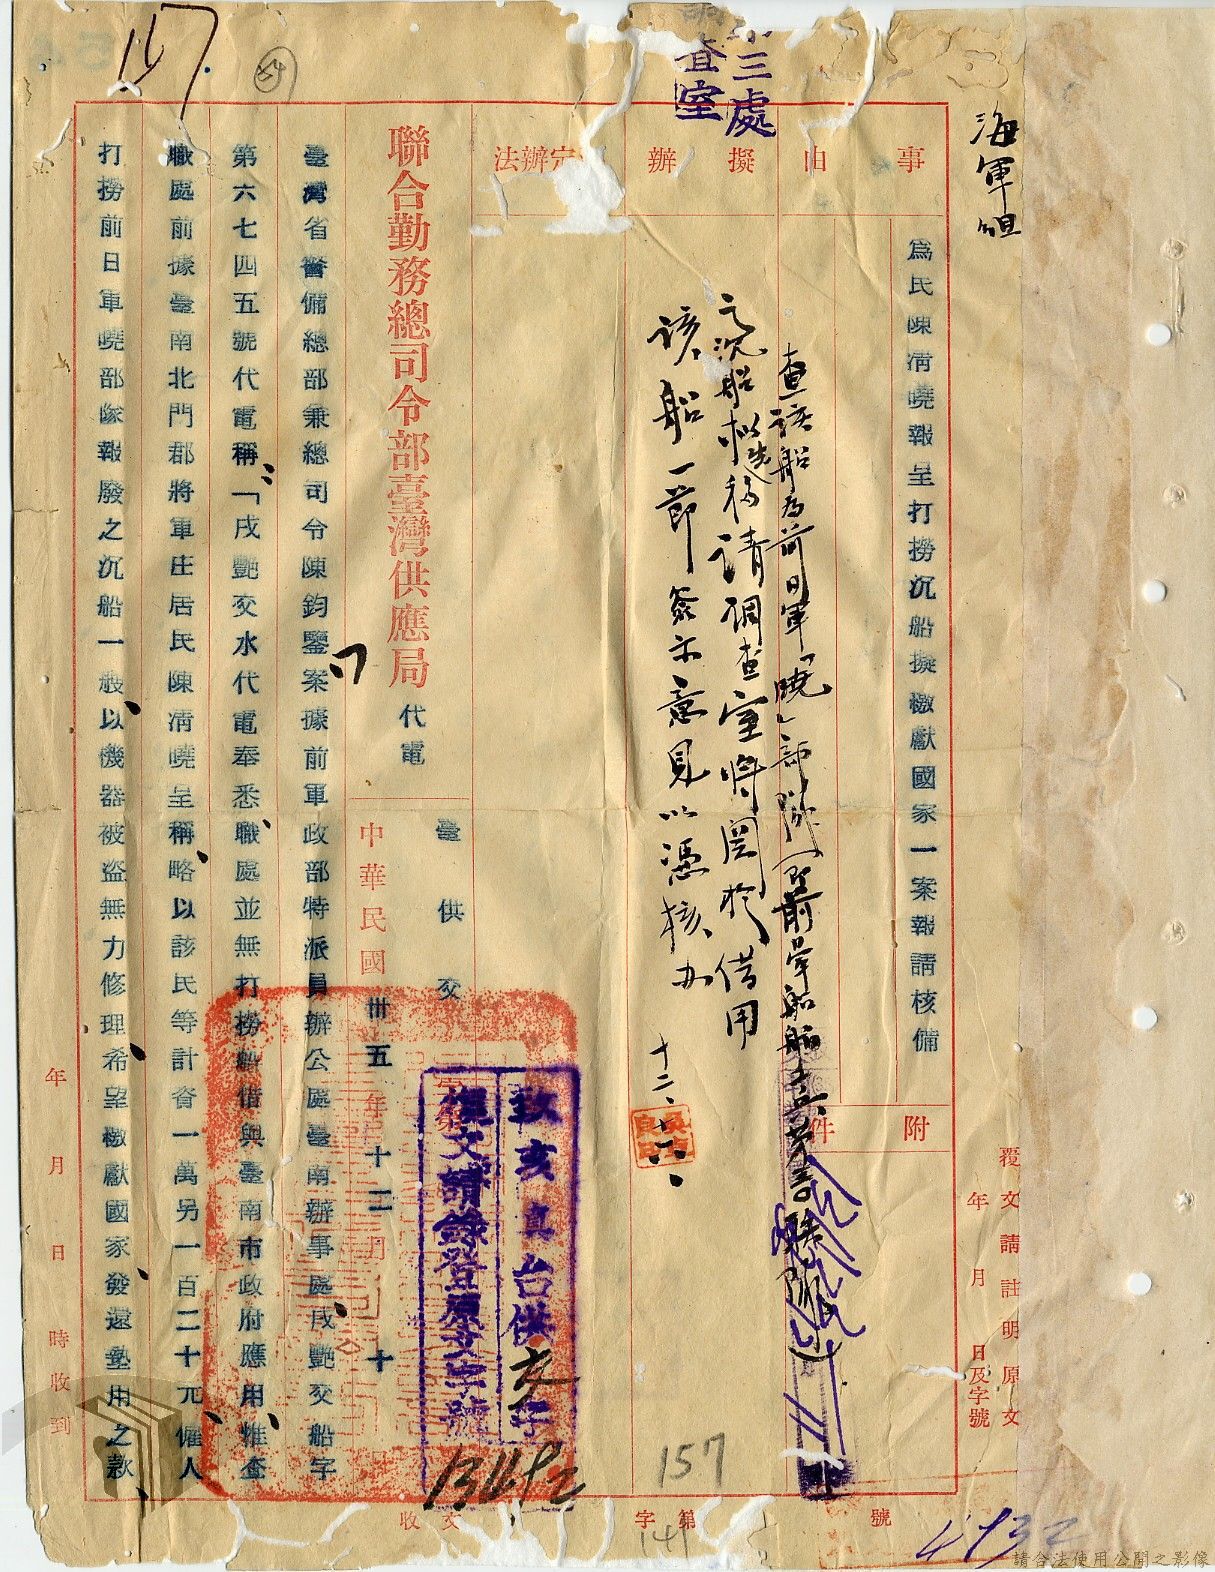 海軍組
第三處
查室
事由
為民陳清曉報呈打撈沉船擬繳獻國家一案報請核備
附件
擬辦
查該船為前日軍「曉」部隊(即前
之沉船擬先移請調查室將關於借用
該船一節簽示意見以憑核办
十二、十八、
定辦法
聯合勤務總司令部臺灣供應局代電
臺供交
中華民國卅五年十二月十
致亥真台供交字
復文請錄登原文字號
13492
臺灣省警備總部兼總司令陳鈞鑒案據前軍政部特派員辦公處臺南辦事處戌艷交船字
第六七四五號代電稱「戌艷交水代電奉悉職處並無打撈船借與臺南市政府應用惟查
職處前據臺南北門郡將軍庄居民陳清曉呈稱略以該民等計資一萬另一百二十元僱人
打撈前日軍曉部隊報廢之沉船一艘以機器被盜無力修理希望繳獻國家發還墊用之款
年月日時收到
覆文請註明原文
年月日及字號
收文
字第
號
157
141
4932
157
54
請合法使用公開之影像